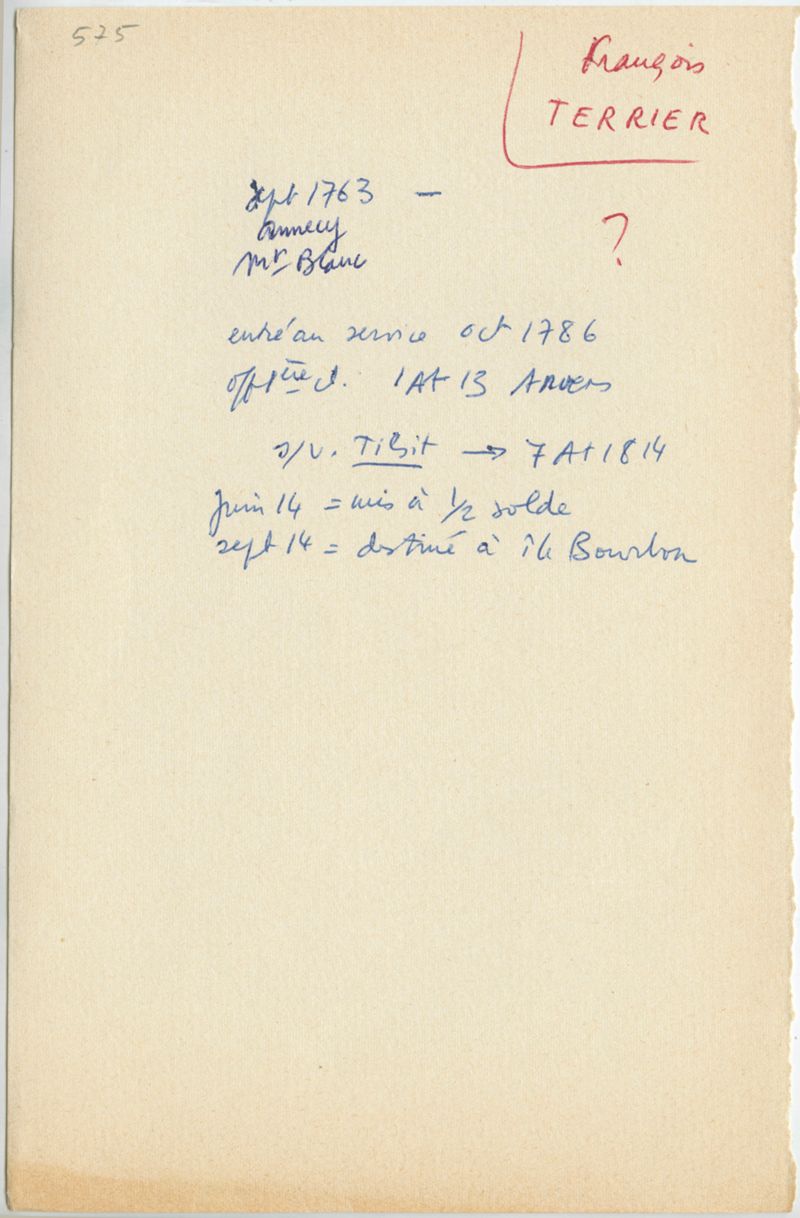 575
François
TERRIER
sept 1763 —
Annecy
Mt Blanc
?
entré au service oct 1786
off 1ère cl. 1 At 13 Anvers
s/v. Tilsit → 7 At 1814
Juin 14 = mis à 1/2 solde
sept 14 = destiné à île Bourbon